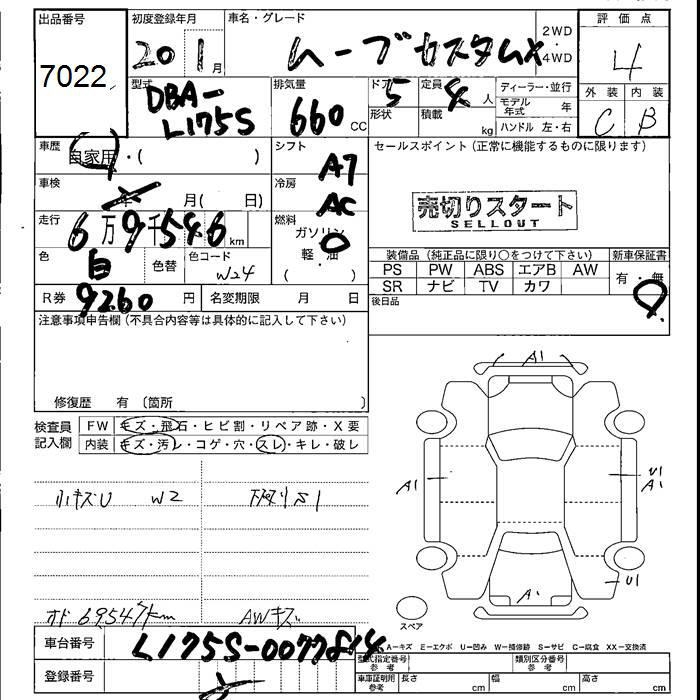 出品番号 初度登録年月 車名・グレード 2WD ・ 4WD 評価点
7022 20 1月 ムーブカスタムX 4
型式 排気量 ドア 定員 ディーラー・並行 外装 内装
DBA-L175S 660 CC 5 4人 モデル年式 年 C B
形状 積載 kg ハンドル 左・右
車歴 自家用・( ) シフト A7 セールスポイント(正常に機能するものに限ります)
車検 年 月( 日) 冷房 AC
売切りスタート
SELLOUT
走行 6万9千546km 燃料 ガソリン 軽・油
装備品(純正品に限り○をつけて下さい) 新車保証書
色 白 色替 色コード W24
PS PW ABS エアB AW 有・無
SR ナビ TV カワ
R券 9260円 名変期限 月 日
後日品
注意事項申告欄(不具合内容等は具体的に記入して下さい)
修復歴 有 〔箇所 〕
検査員記入欄 FW キズ・飛石・ヒビ割・リペア跡・X要
内装 キズ・汚レ・コゲ・穴・スレ・キレ・破レ
A1
A1
U1
A1
小キズU W2 下廻りS1
U1
A1
スペア
オド 69547km AWキズ
車台番号 L175S-0077814
A-キズ E-エクボ U-凹み W-補修跡 S-サビ C-腐食 XX-交換済
型式指定番号 参考 類別区分番号 参考
登録番号
車庫証明用 参考 長さ cm 幅 cm 高さ cm